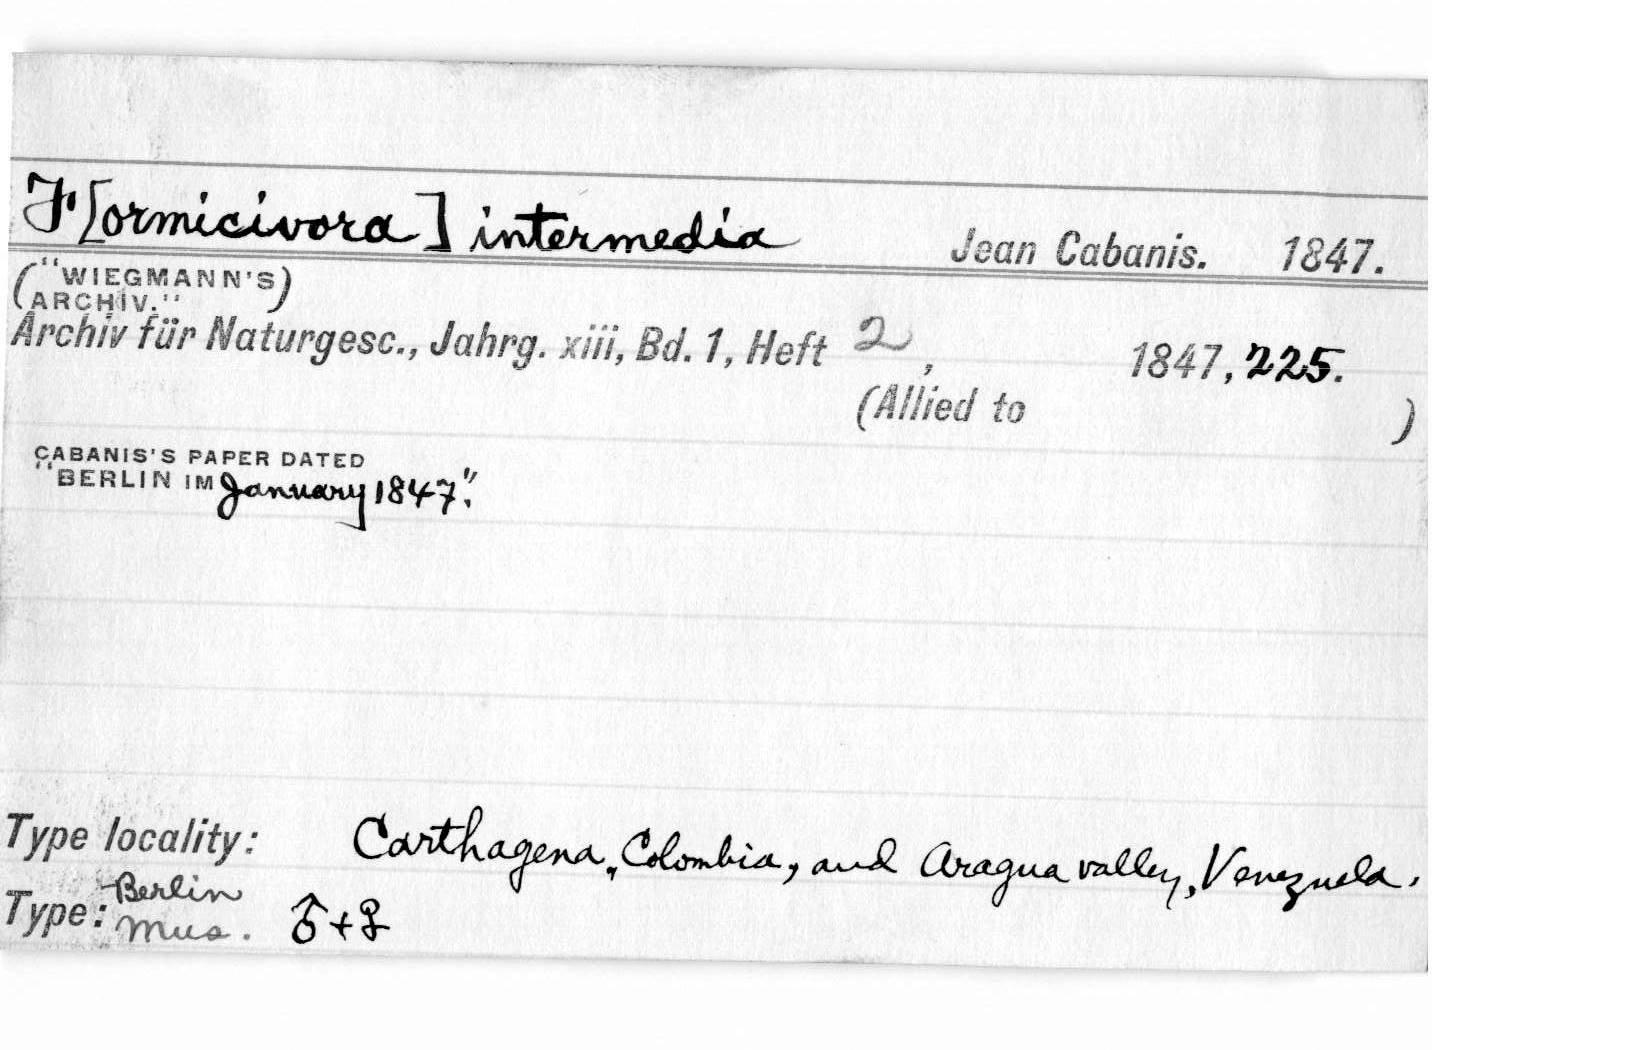 F[ormicivora] intermedia Jean Cabanis. 1847.
("WIEGMANN'S)
(ARCHIV."
Archiv für Naturgesc., Jahrg. xiii, Bd. 1, Heft 2, 1847, 225.
(Allied to )
CABANIS'S PAPER DATED
"BERLIN IM January 1847".
Type locality: Carthagena, Colombia, and Aragua valley, Venezuela.
Type: Berlin Mus. ♂+♀